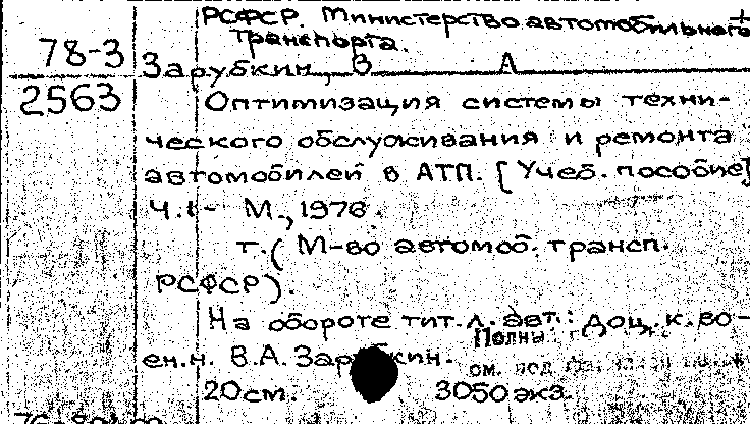 РСФСР. Министерство автомобильного
транспорта.
78-3
Зарубкин, В А
2563
Оптимизация системы техни-
ческого обслуживания и ремонта
автомобилей в АТП. [Учеб. пособие]
Ч.1- М., 1976.
т. ( М-во автомоб. трансп.
РСФСР).
На обороте тит. л. авт.: доц. к. во-
ен. н. В.А. Зарубкин.
Полны
см. под
20 см. 3050 экз.